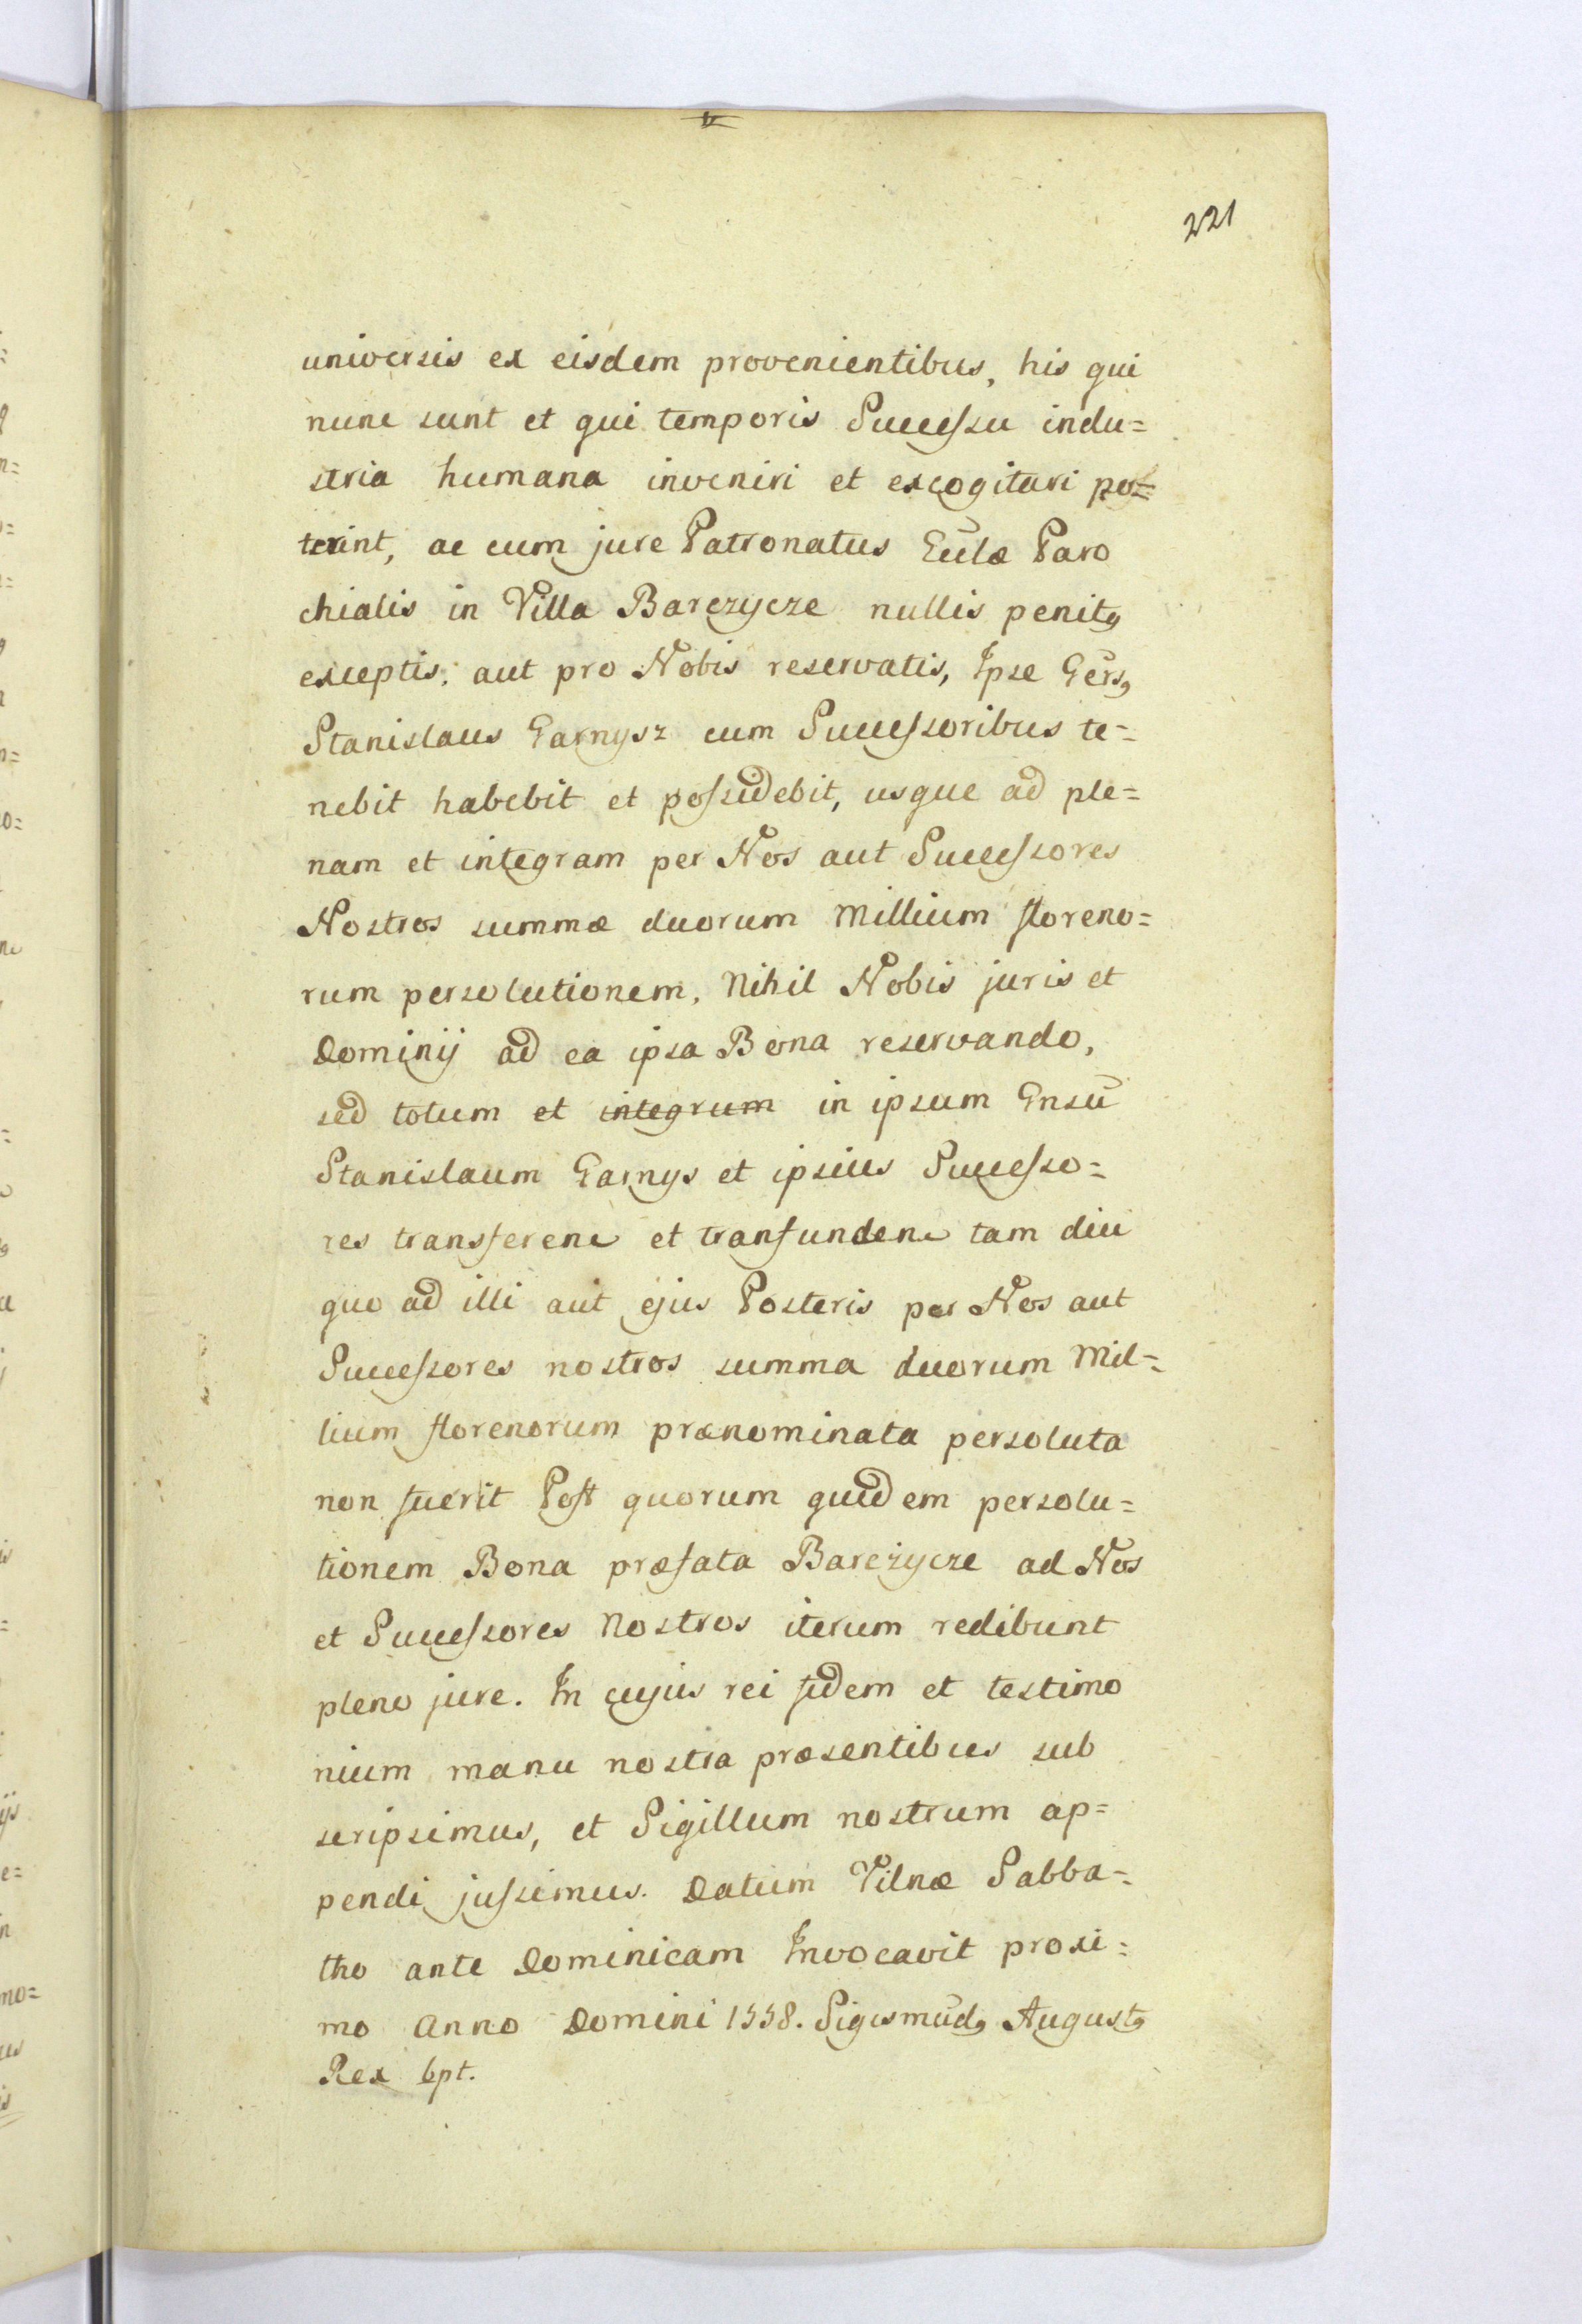 221
universis ex eisdem provenientibus, his qui
nunc sunt et qui temporis Successu indu=
stria humana inveniri et excogitari po=
terint, ac cum jure Patronatus Ecclæ Paro
chialis in Villa Barczycze nullis penitꝯ
exceptis, aut pro Nobis reservatis, Ipse Gersꝯ
Stanislaus Garnysz cum Successoribus te=
nebit habebit et possidebit, usque ad ple=
nam et integram per Nos aut Successores
Nostros summæ duorum Millium floreno=
rum persolutionem, Nihil Nobis juris et
Dominij ad ea ipsa Bona reservando,
sed totum et integrum in ipsum Gnsū
Stanislaum Garnys et ipsius Successo=
res transferen et transfunden tam diu
quo ad illi aut ejus Posteris per Nos aut
Successores nostros summa duorum Mil=
lium florenorum prænominata persoluta
non fuerit Post quorum quidem persolu=
tionem Bona præfata Barczycze ad Nos
et Successores Nostros iterum redibunt
pleno jure. In cujus rei fidem et testimo
nium manu nostra præsentibus sub
scripsimus, et Sigillum nostrum ap=
pendi jussimus. Datum Vilnæ Sabba=
tho ante Dominicam Invocavit proxi=
mo Anno Domini 1558. Sigismūdꝯ Augustꝯ
Rex spt.